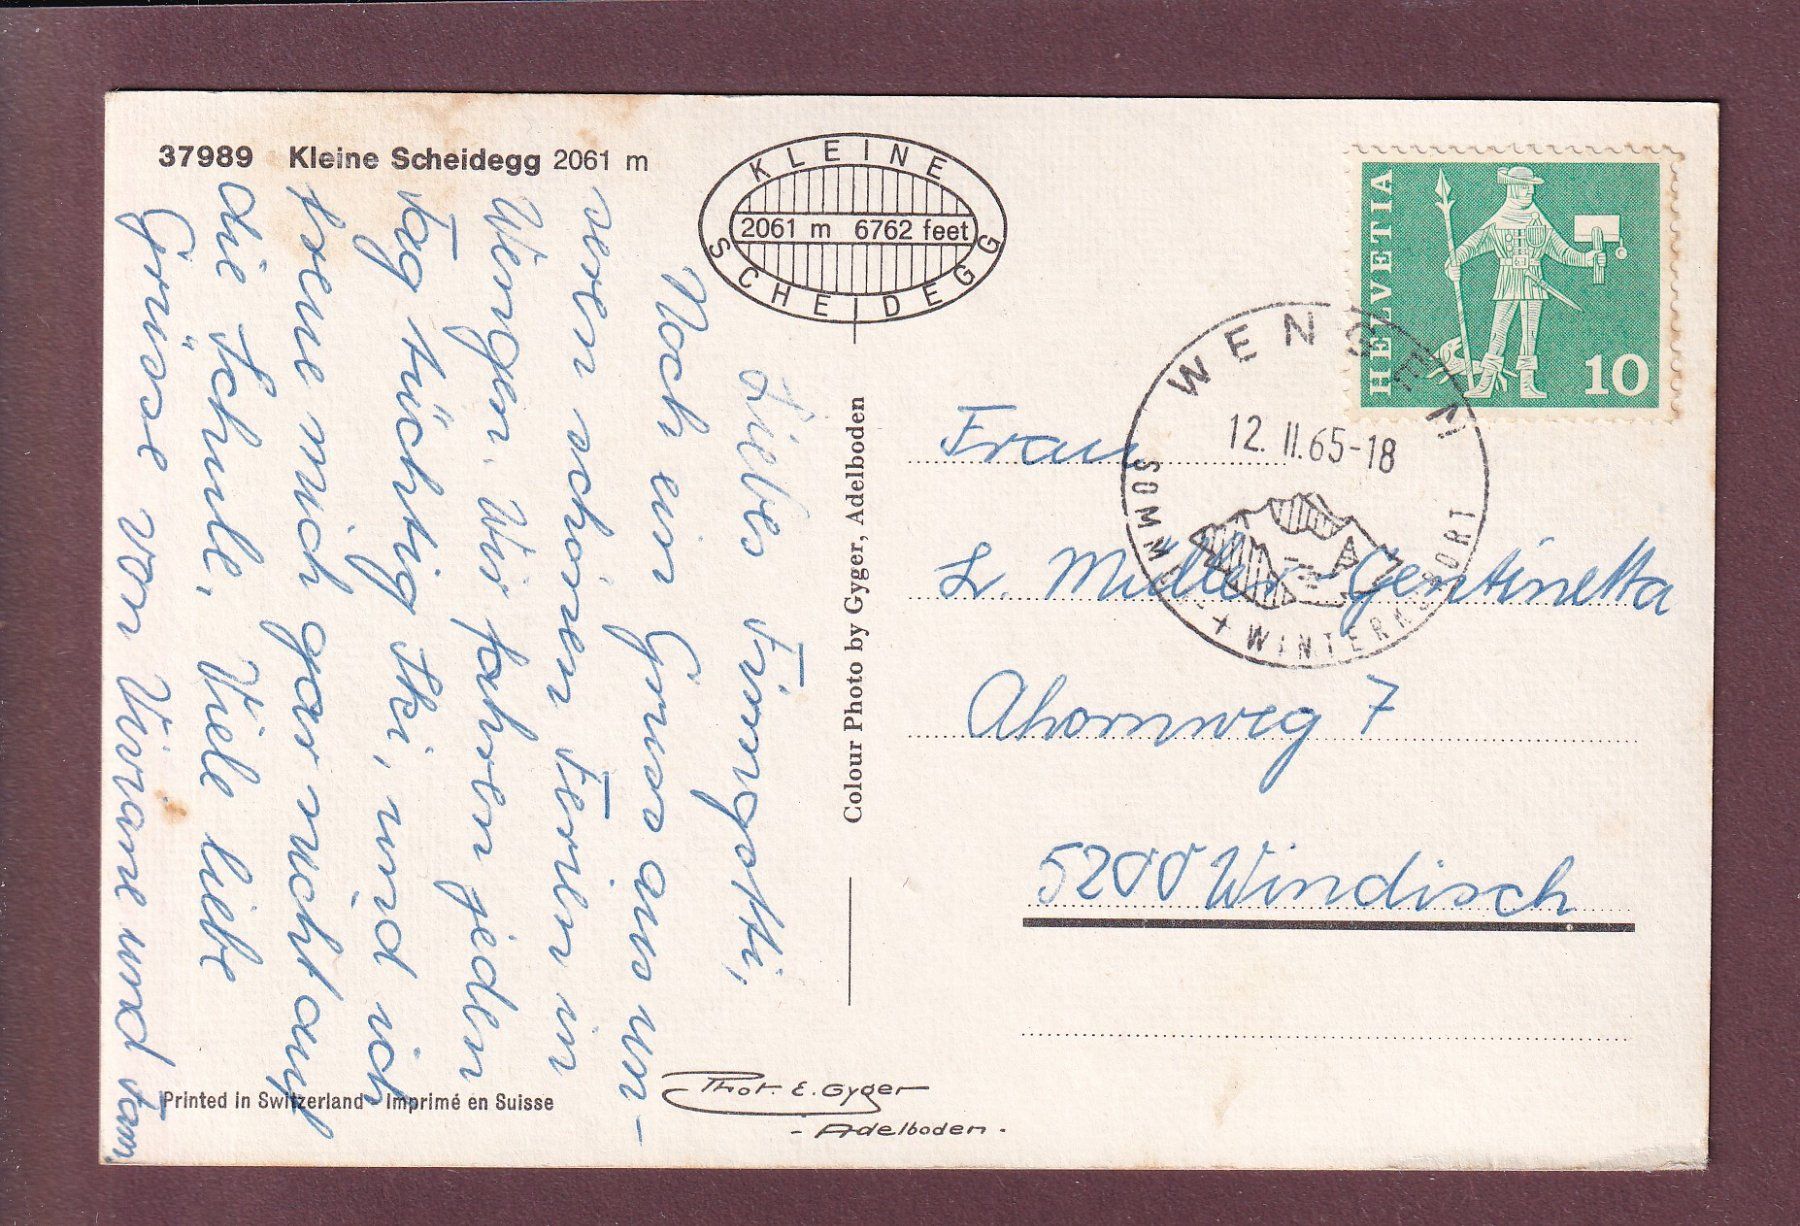 37989 Kleine Scheidegg 2061 m
KLEINE SCHEIDEGG
2061 m 6762 feet
Noch ein Gruss aus un-
seren schönen Ferien in
Wengen. Wir fahren jeden
Tag tüchtig Ski, und ich
freue mich gar nicht auf
die Schule. Viele liebe
Grüsse von Viviane und Fam.
Colour Photo by Gyger, Adelboden
Printed in Switzerland - Imprimé en Suisse
Phot. E. Gyger
- Adelboden -
HELVETIA
10
WENGEN
12. II. 65-18
SOMMER- + WINTERKURORT
Frau
L. Müller-Gentinetta
Ahornweg 7
5200 Windisch